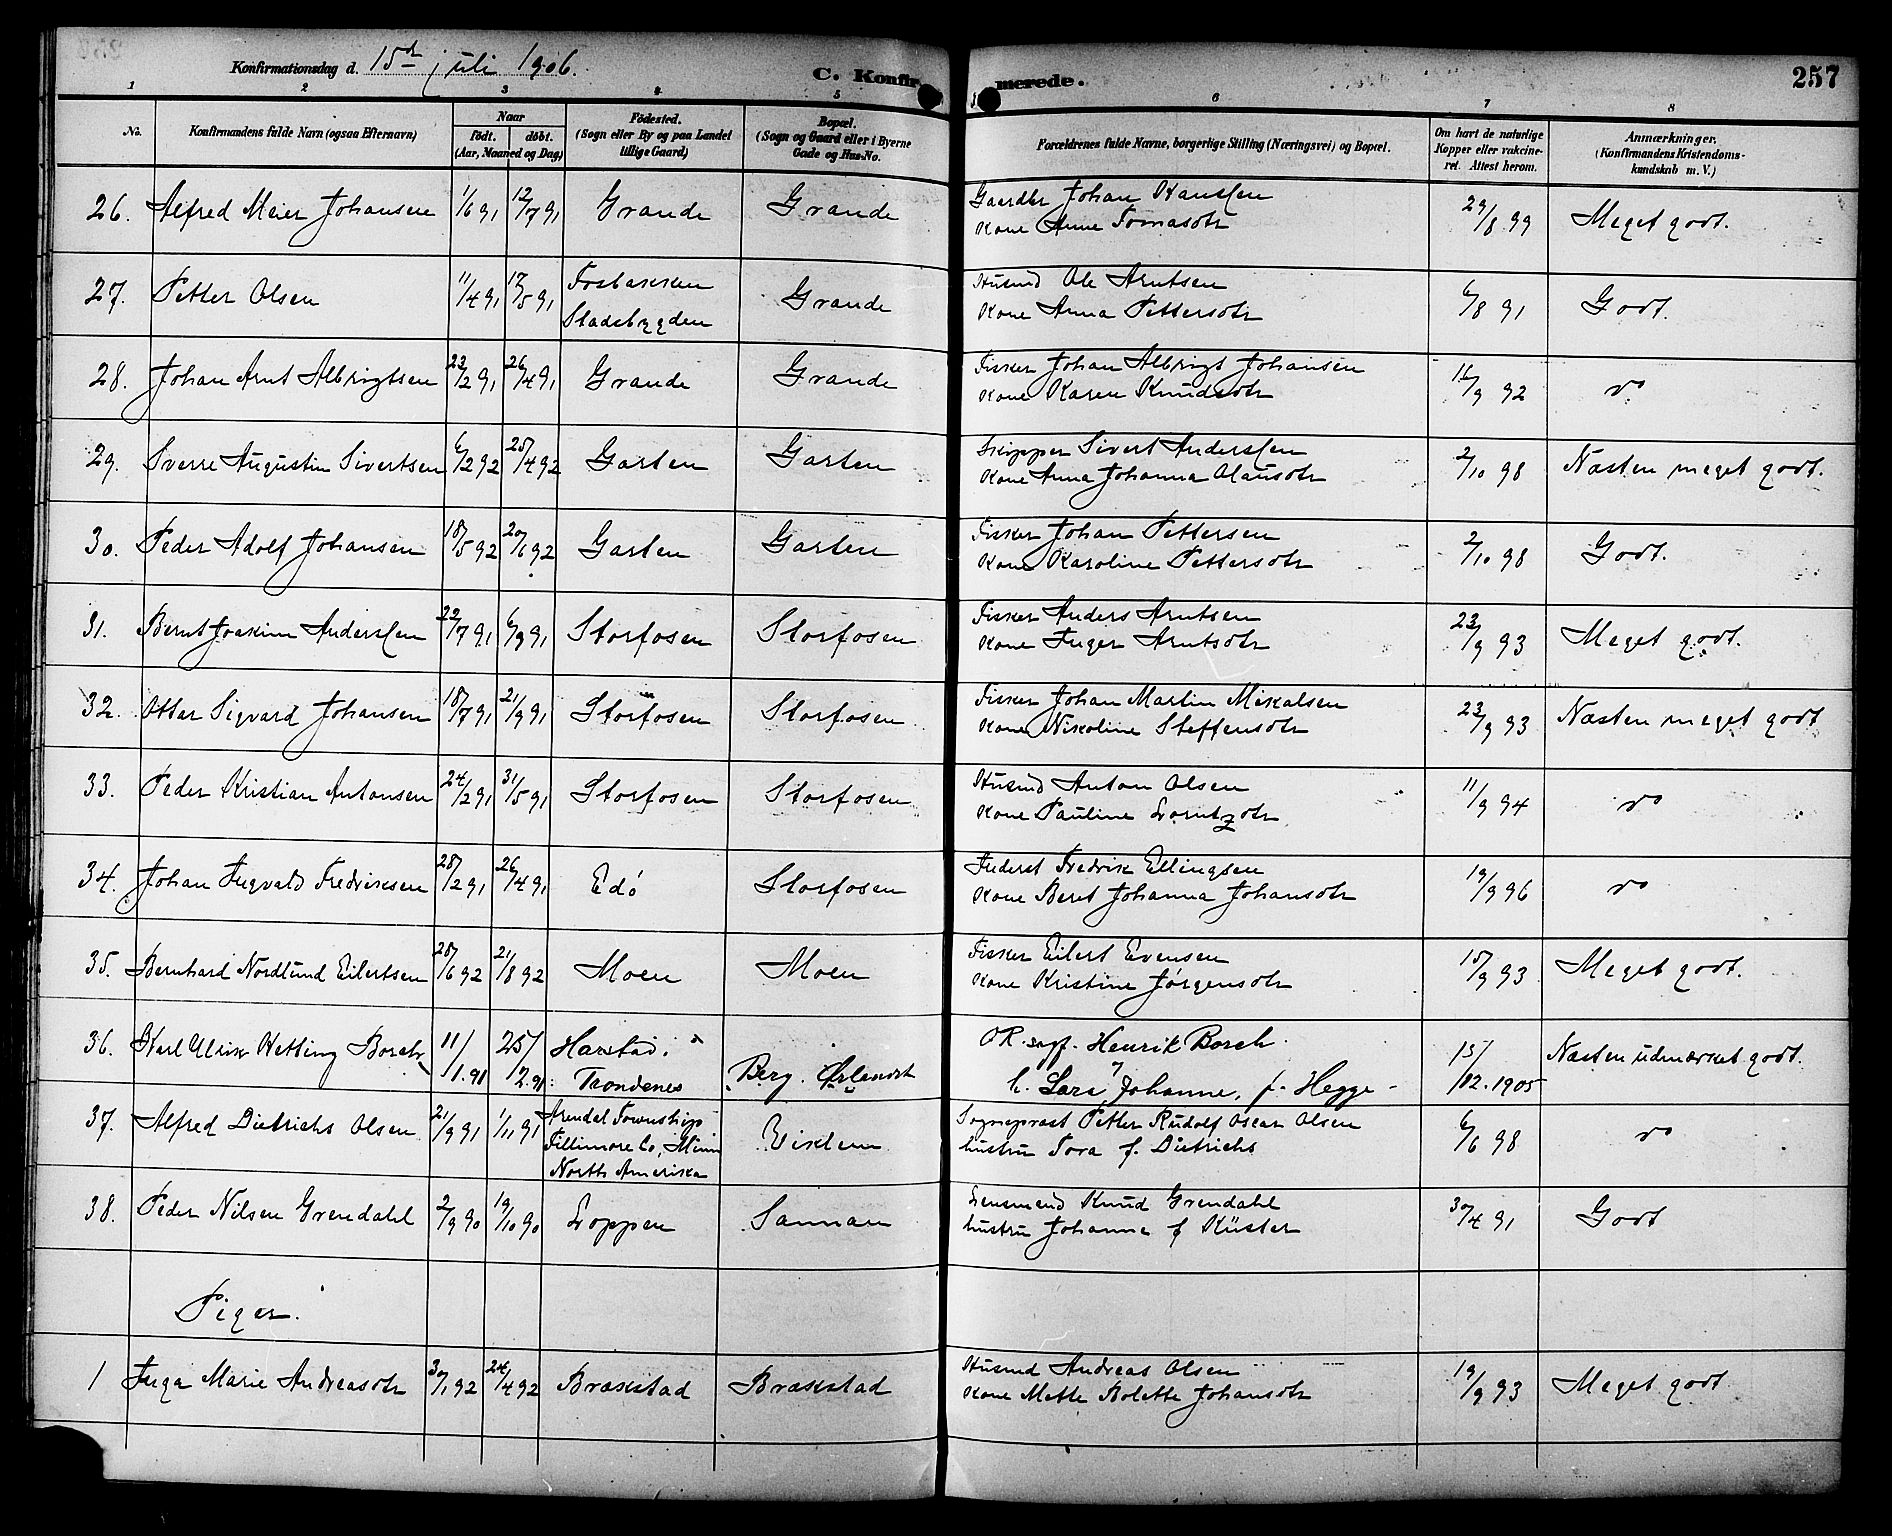 Konfirmationsdag d. 15d juli 1906.
C. Konfirmerede.
257
1 2 3 4 5 6 7 8
No.
Konfirmandens fulde Navn (ogsaa Efternavn)
Naar
födt. döbt.
(Aar, Maaned og Dag)
Födested.
(Sogn eller By og paa Landet
tillige Gaard)
Bopæl.
(Sogn og Gaard eller i Byerne
Gade og Hus-No.
Forældrenes fulde Navne, borgerlige Stilling (Næringsvei) og Bopæl.
Om havt de naturlige
Kopper eller vakcine-
ret. Attest herom.
Anmærkninger.
(Konfirmandens Kristendoms-
kundskab m. V.)
26. Alfred Meier Johansen 11/6 91 12/7 91 Grande Grande Gaardbr Johan Hansen 29/8 99 Meget godt.
Kone Anne Tomasdtr
27. Petter Olsen 11/4 91 17/5 91 Fosbakken Grande Husmd Ole Arntsen 6/8 91 Godt.
Stadsbygden Kone Anna Pettersdtr
28. Johan Arnt Albrigtsen 23/2 91 26/4 91 Grande Grande Fisker Johan Albrigt Johansen 16/9 92 do
Kone Karen Knudsdtr
29. Sverre Augustin Sivertsen 6/2 92 25/4 92 Garten Garten Skipper Sivert Anderssen 2/10 98 Næsten meget godt.
Kone Anna Johanna Olausdtr
30. Peder Adolf Johansen 18/5 92 20/6 92 Garten Garten Fisker Johan Pettersen 2/10 98 Godt.
Kone Karoline Pettersdtr
31. Bernt Joakim Anderssen 22/7 91 6/9 91 Storfosen Storfosen Fisker Anders Arntsen 23/9 93 Meget godt.
Kone Inger Arntsdtr
32. Ottar Sigvard Johansen 18/7 91 21/9 91 Storfosen Storfosen Fisker Johan Martin Mikalsen 23/9 93 Næsten meget godt
Kone Nikoline Steffensdtr
33. Peder Kristian Antonsen 24/2 91 31/5 91 Storfosen Storfosen Husmd Anton Olsen 11/9 94 do
Kone Pauline Lorntzdtr
34. Johan Ingvald Fredriksen 28/2 91 26/4 91 Edö Storfosen Inderst Fredrik Ellingsen 19/9 96 do
Kone Beret Johanna Johansdtr
35. Bernhard Nordlund Eilertsen 28/6 92 21/8 92 Moen Moen Fisker Eilert Evensen 15/9 93 Meget godt.
Kone Kristine Jørgensdtr
36. Karl Ulrik Wetting Borch 11/1. 91 25/2. 91 Harstad i Berg. Ørlandet OR.sagf. Henrik Borch. 15/12. 1905 Næsten udmærket godt.
Trondenes h. Lara Johanne, f. Hegge
37. Alfred Dietrichs Olsen 21/9 91 1/11 91 Arendal Township Viklem Sogneprest Petter Rudolf Oscar Olsen 6/6 98 do
Fillimore Co, Minn hustru Tora f. Dietrichs
North Amerika
38. Peder Nilsen Grendahl 2/9 90 19/10 90 Loppen Sannan Lensmend Knud Grendahl 30/4 91 Godt
hustru Johanne f Küster
Piger.
1 Inga Marie Andreasdtr 30/1 92 24/4 92 Brækstad Brækstad Husmd Andreas Olsen 19/9 93 Meget godt
Kone Mette Bolette Johansdtr